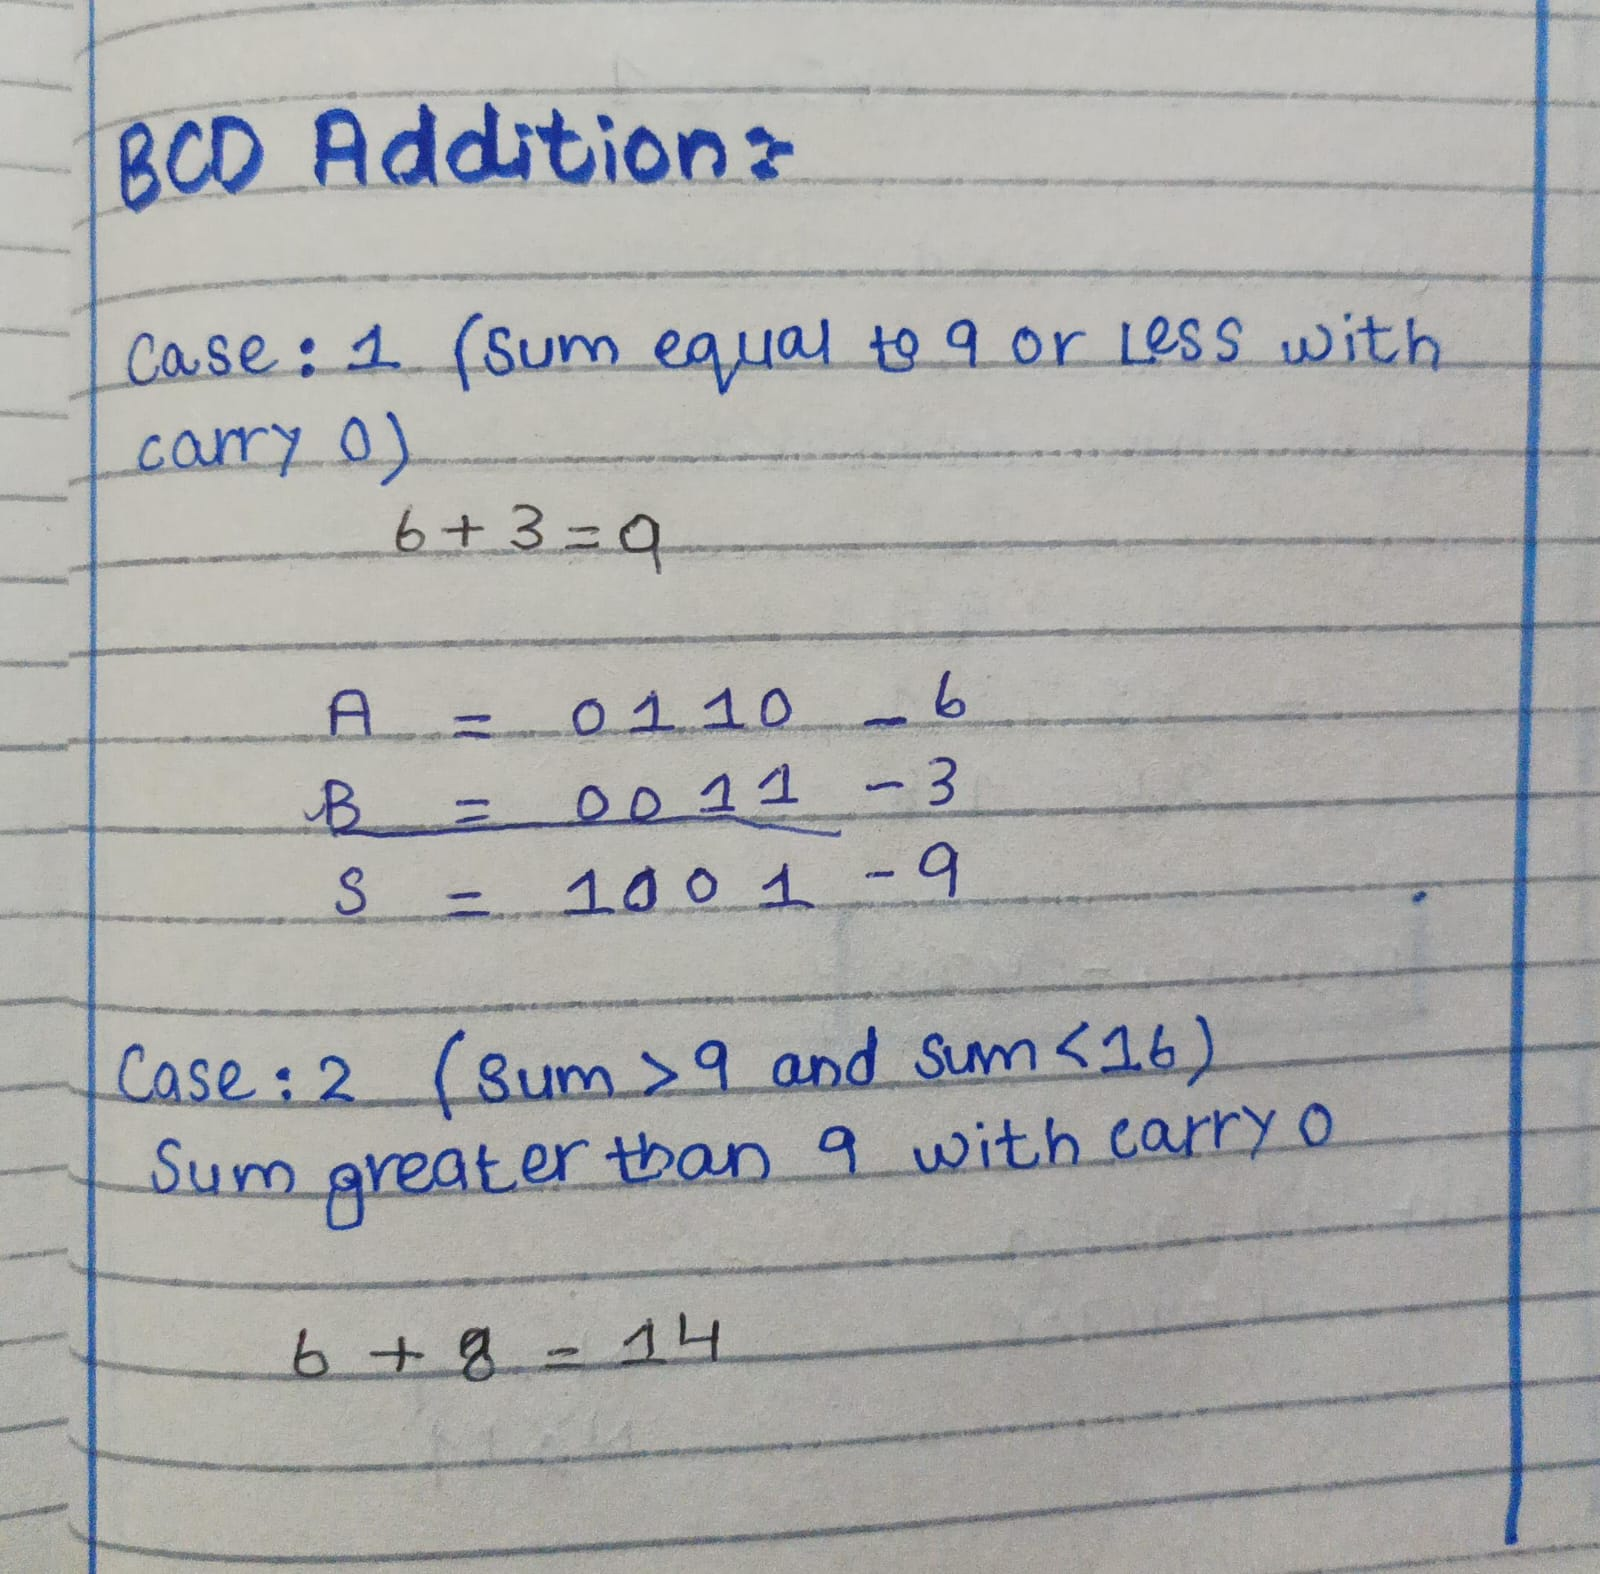 BCD Addition:
Case: 1 (Sum equal to 9 or Less with
carry 0)
6 + 3 = 9
A = 0110 - 6
B = 0011 - 3
S = 1001 - 9
Case: 2 (Sum > 9 and sum < 16)
Sum greater than 9 with carry 0
6 + 8 = 14